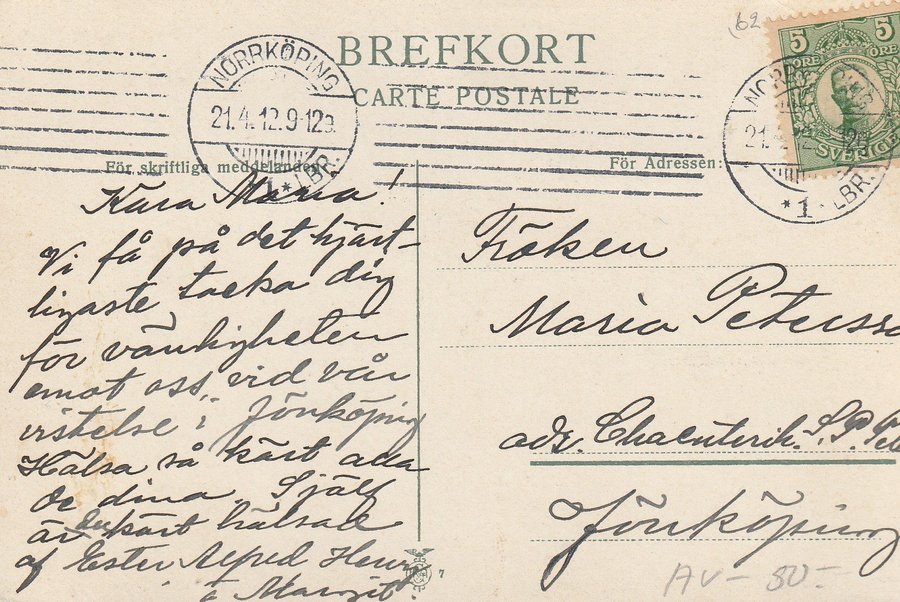 BREFKORT
CARTE POSTALE
NORRKÖPING
21.4.12.9-12 F.
*1* LBR.
5 5
ÖRE ÖRE
SVERIGE
(62
För skriftliga meddelanden
För Adressen:
Kära Maria!
Vi få på det hjärt-
ligaste tacka dig
för vänligheten
emot oss, vid vår
vistelse i Jönköping
Hälsa så kärt alla
de dina. Själf
är du kärt hälsad
af Ester Alfred Henry
& Margit.
Fröken
Maria Peterss
adr. Charkuterih. S.P. Pet
Jönköping
7
AV - 80:-